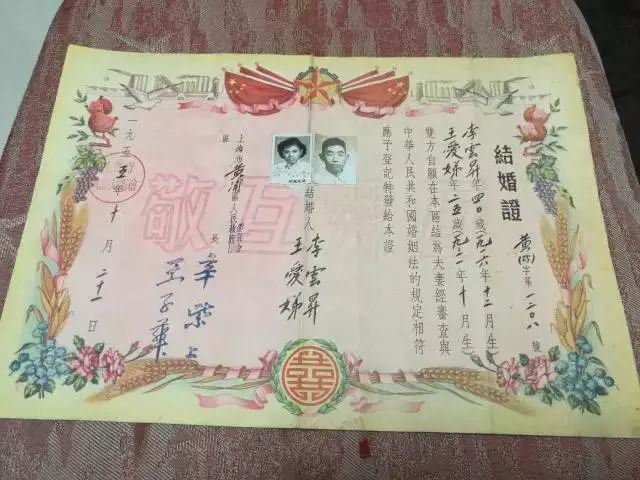 結婚證
黃(四)字第一二〇八號
李雲昇年四〇歲(一九一六年十二月生)
王愛娣年二五歲(一九三一年十月生)
雙方自願在本區結為夫妻經審查與
中華人民共和國婚姻法的規定相符
應予登記特發給本證
結婚人
李雲昇
王愛娣
上海市黃浦區人民委員會
區長
一九五五年十月二十一日
敬互